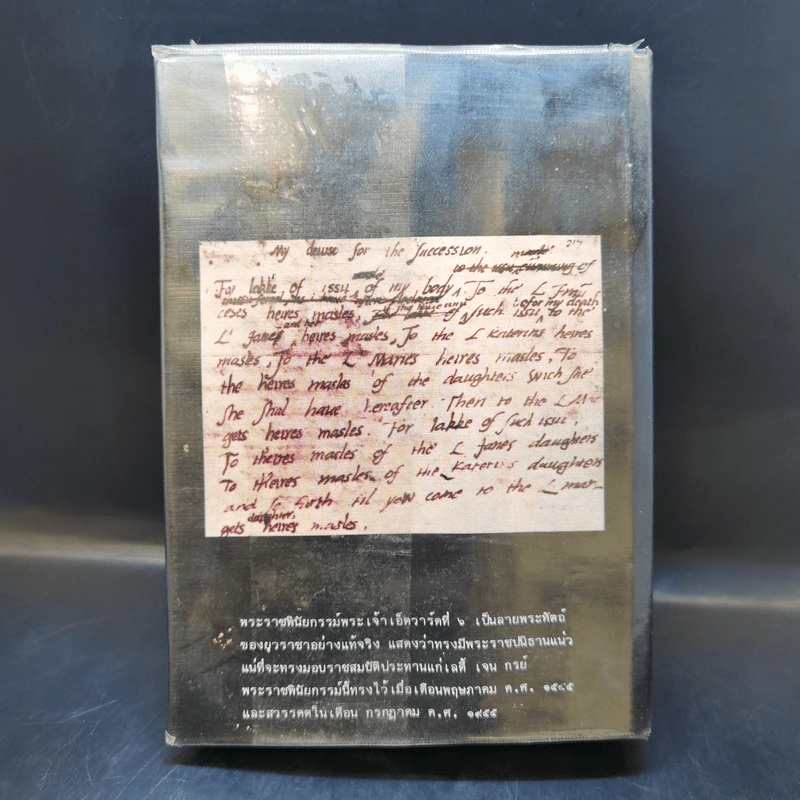 My devise for the Succession.
For lakke of issu of my body, To the L Fran
ceses heires masles, such issu, to the
L' Janes heires masles, To the L Katerins heires
masles, To the L Maries heires masles, To
the heires masles of the daughters wich she
she shal have hereafter. Then to the L Mar
gets heires masles. For lakke of such issu,
To theires masles of the L Janes daughters
To theires masles of the Katerins daughters
and so forth til yow come to the L mar
gets daughters heires masles.
พระราชพินัยกรรม์พระเจ้าเอ็ดวาร์ดที่ ๖ เป็นลายพระหัตถ์
ของยุวราชาอย่างแท้จริง แสดงว่าทรงมีพระราชปณิธานแน่ว
แน่ที่จะทรงมอบราชสมบัติประทานแก่เลดี้ เจน เกรย์
พระราชพินัยกรรม์นี้ทรงไว้เมื่อเดือนพฤษภาคม ค.ศ.
และสวรรคตในเดือน กรกฎาคม ค.ศ.